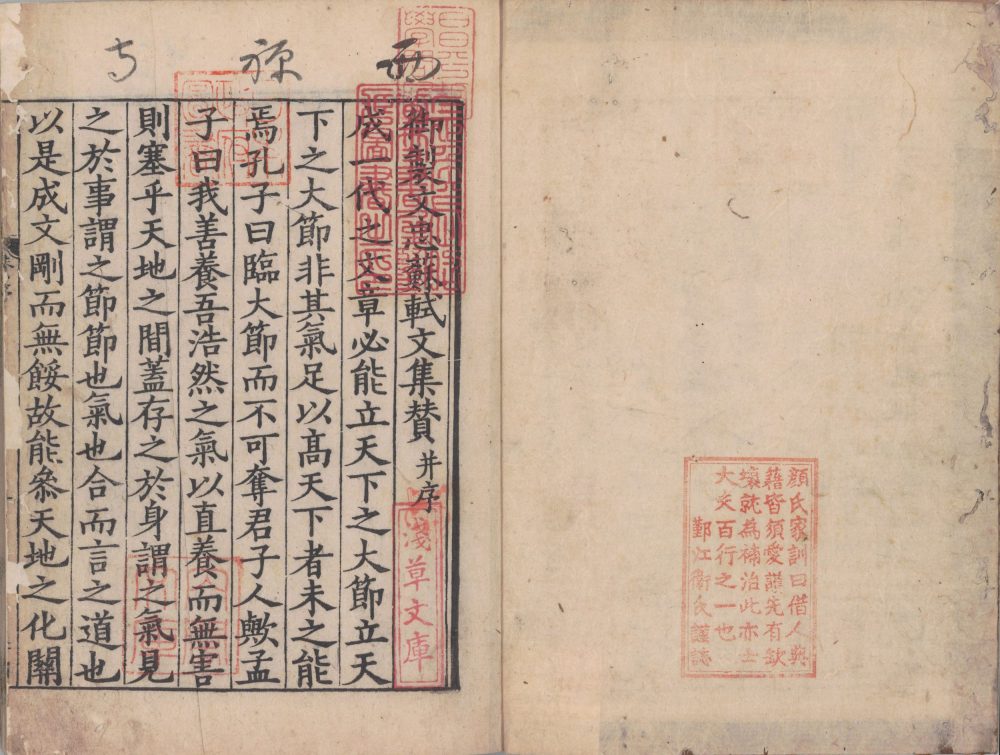 顔氏家訓曰借人典
籍皆須愛護先有缺
壞就為補治此亦士
大夫百行之一也
鄞江衛氏謹誌
西禅寺
御製文忠蘇軾文集賛并序
成一代之文章必能立天下之大節立天
下之大節非其氣足以髙天下者未之能
焉孔子曰臨大節而不可奪君子人歟孟
子曰我善養吾浩然之氣以直養而無害
則塞乎天地之間蓋存之於身謂之氣見
之於事謂之節節也氣也合而言之道也
以是成文剛而無餒故能叅天地之化關
淺草文庫